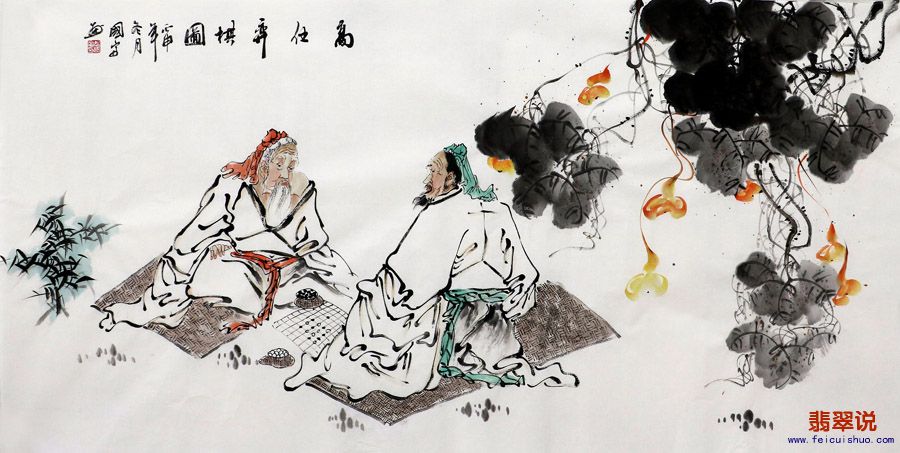 高仕弈棋圖
丙申年
冬月
國
画
翡翠说
www.feicuishuo.com